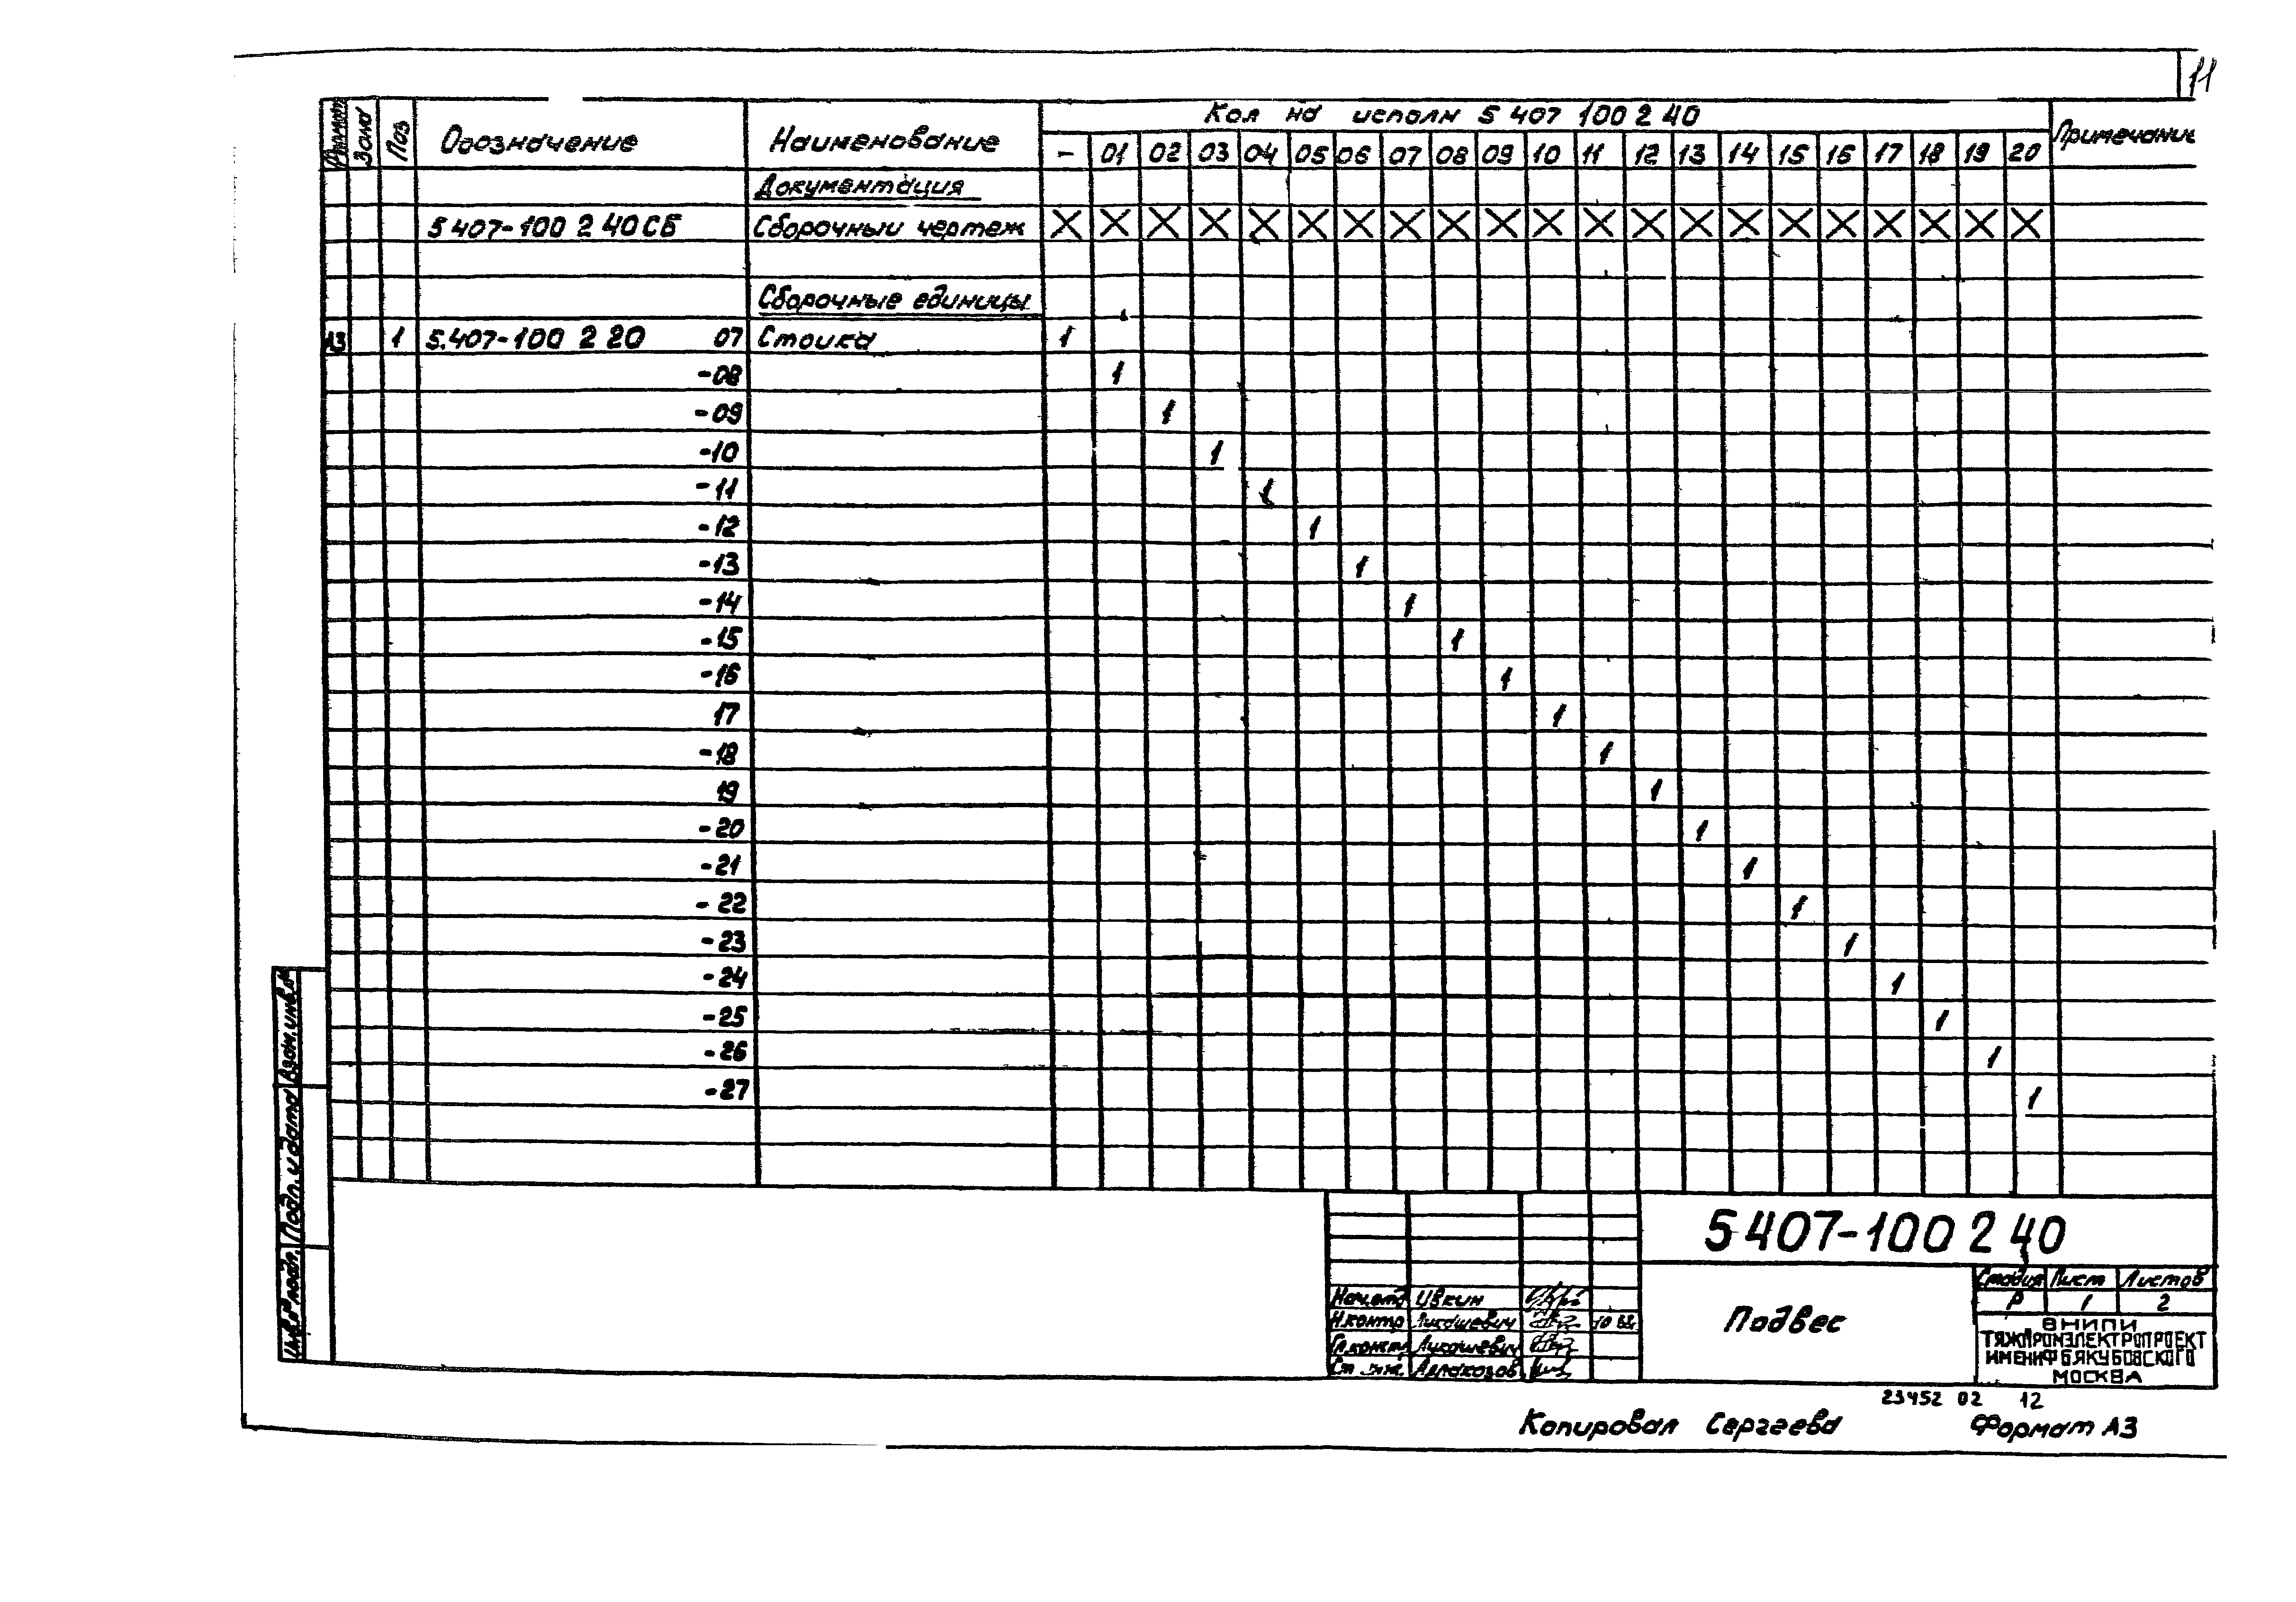 11
Формат Зона Поз Обозначение Наименование Кол на исполн 5 407 100 2 40 Примечание
– 01 02 03 04 05 06 07 08 09 10 11 12 13 14 15 16 17 18 19 20
Документация
5 407-100 2 40 СБ Сборочный чертеж X X X X X X X X X X X X X X X X X X X X X
Сборочные единицы
А3 1 5.407-100 2 20 07 Стойка 1
-08 1
-09 1
-10 1
-11 1
-12 1
-13 1
-14 1
-15 1
-16 1
17 1
-18 1
19 1
-20 1
-21 1
-22 1
-23 1
-24 1
-25 1
-26 1
-27 1
Взам.инв.№
Подп. и дата
Инв.№ подл.
5 407-100 2 40
Нач.отд Цвкин
Н.контр Лукашевич
Гл.констр Лукашевич
Ст инж.
Подвес
Стадия Лист Листов
Р 1 2
ВНИПИ
ТЯЖПРОМЭЛЕКТРОПРОЕКТ
ИМЕНИ Ф Б ЯКУБОВСКОГО
МОСКВА
23452 02 12
Копировал Сергеева Формат А3